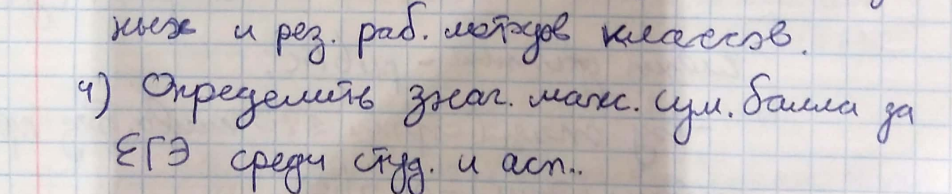 ных и рез. раб. методов классов.
4) Определить знач. макс. сум. балла за
ЕГЭ среди студ. и асп..